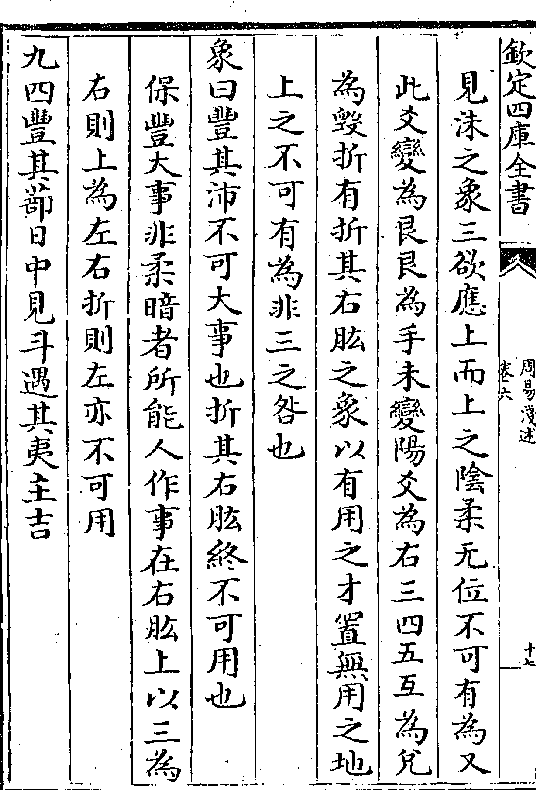 欽定四庫全書
周易淺述
卷六
十七
見沬之象三欲應上而上之陰柔无位不可有為又
此爻變為艮艮為手未變陽爻為右三四五互為兌
為毀折有折其右肱之象以有用之才置無用之地
上之不可有為非三之咎也
象曰豐其沛不可大事也折其右肱終不可用也
保豐大事非柔暗者所能人作事在右肱上以三為
右則上為左右折則左亦不可用
九四豐其蔀日中見斗遇其夷主吉